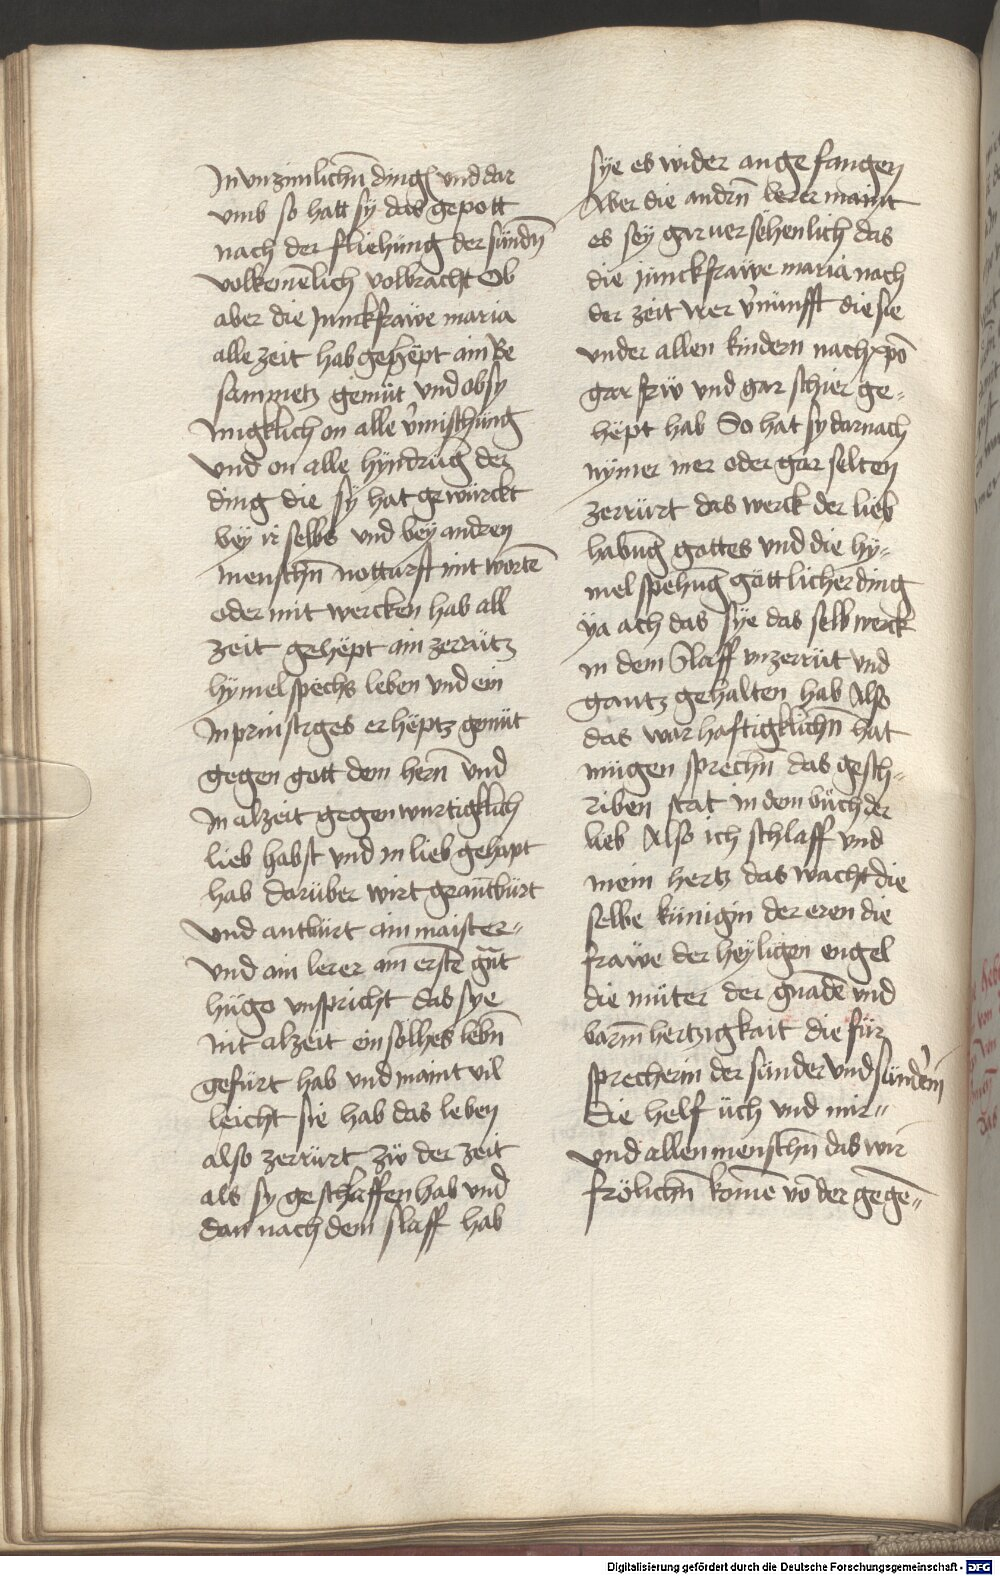 In vnzimlichn̄ dingn̄ vnd dar
vmb so hatt sy das gepott
nach der fliehung der sündn̄
volkomēlich volbracht Ob
aber die Junckfrawe maria
alle zeit hab gehept ain Be
sammetz gemüt vnd ob sy
on alle v̾mischüng
vnd on alle hyndrūg der
ding die sy hat gewürckt
bey ir selbs vnd bey andren
menschn̄ notturft mit wortē
oder mit wercken hab all
zeit gehëpt ain zerrütz
hymelspechs leben vnd ein
erhëptz gemüt
gegen gott dem hern̄ vnd
In alzeit gegenwurtigklich
lieb habst vnd in lieb gehapt
hab darüber wirt geantbürt
vnd antbürt ain maister⸗
vnd ain lerer ain erstē
hugo vnspricht das sye
nit alzeit ein solhes lebn̄
gefürt hab vnd maint vil
leicht sie hab das leben
also zerrürt zü der zeit
als sy geschlaffen hab vnd
dan nach dem slaff hab
sÿe es wider angefangen
Aber die andrn̄ lerer maint
es sëy gar versëhenlich das
die junckfrawe maria nach
der zeit irer v̾nünfft die sie
vnder allen kindern nach xp̄o
gar frw vnd gar schier ge⸗
hëpt hab So hat sy darnach
nÿmer mer oder gar selten
zerrürt das werck der lieb
habūg gottes vnd die hÿ⸗
mel spehūg göttlicher ding
ÿa ach das sÿe das selb werck
in dem slaff vnzerrüt vnd
gantz gehalten hab Also
das warhaftigklichn̄ hat
mügen sprechn̄ das gesch⸗
riben stat in dem büch der
lieb Also ich schlaff vnd
mein hertz das wacht die
selbe künigin der eren die
frawe der heyligen engel
die müter der gnadē vnd
barm̄hertzigkait die für
sprecherin der sünder vnd sündn̾in
die helf üch vnd mir⸗
vnd allen menschn̄ das wir
frölichn̄ komē vō der gegē⸗
Digitalisierung gefördert durch die Deutsche Forschungsgemeinschaft - DFG